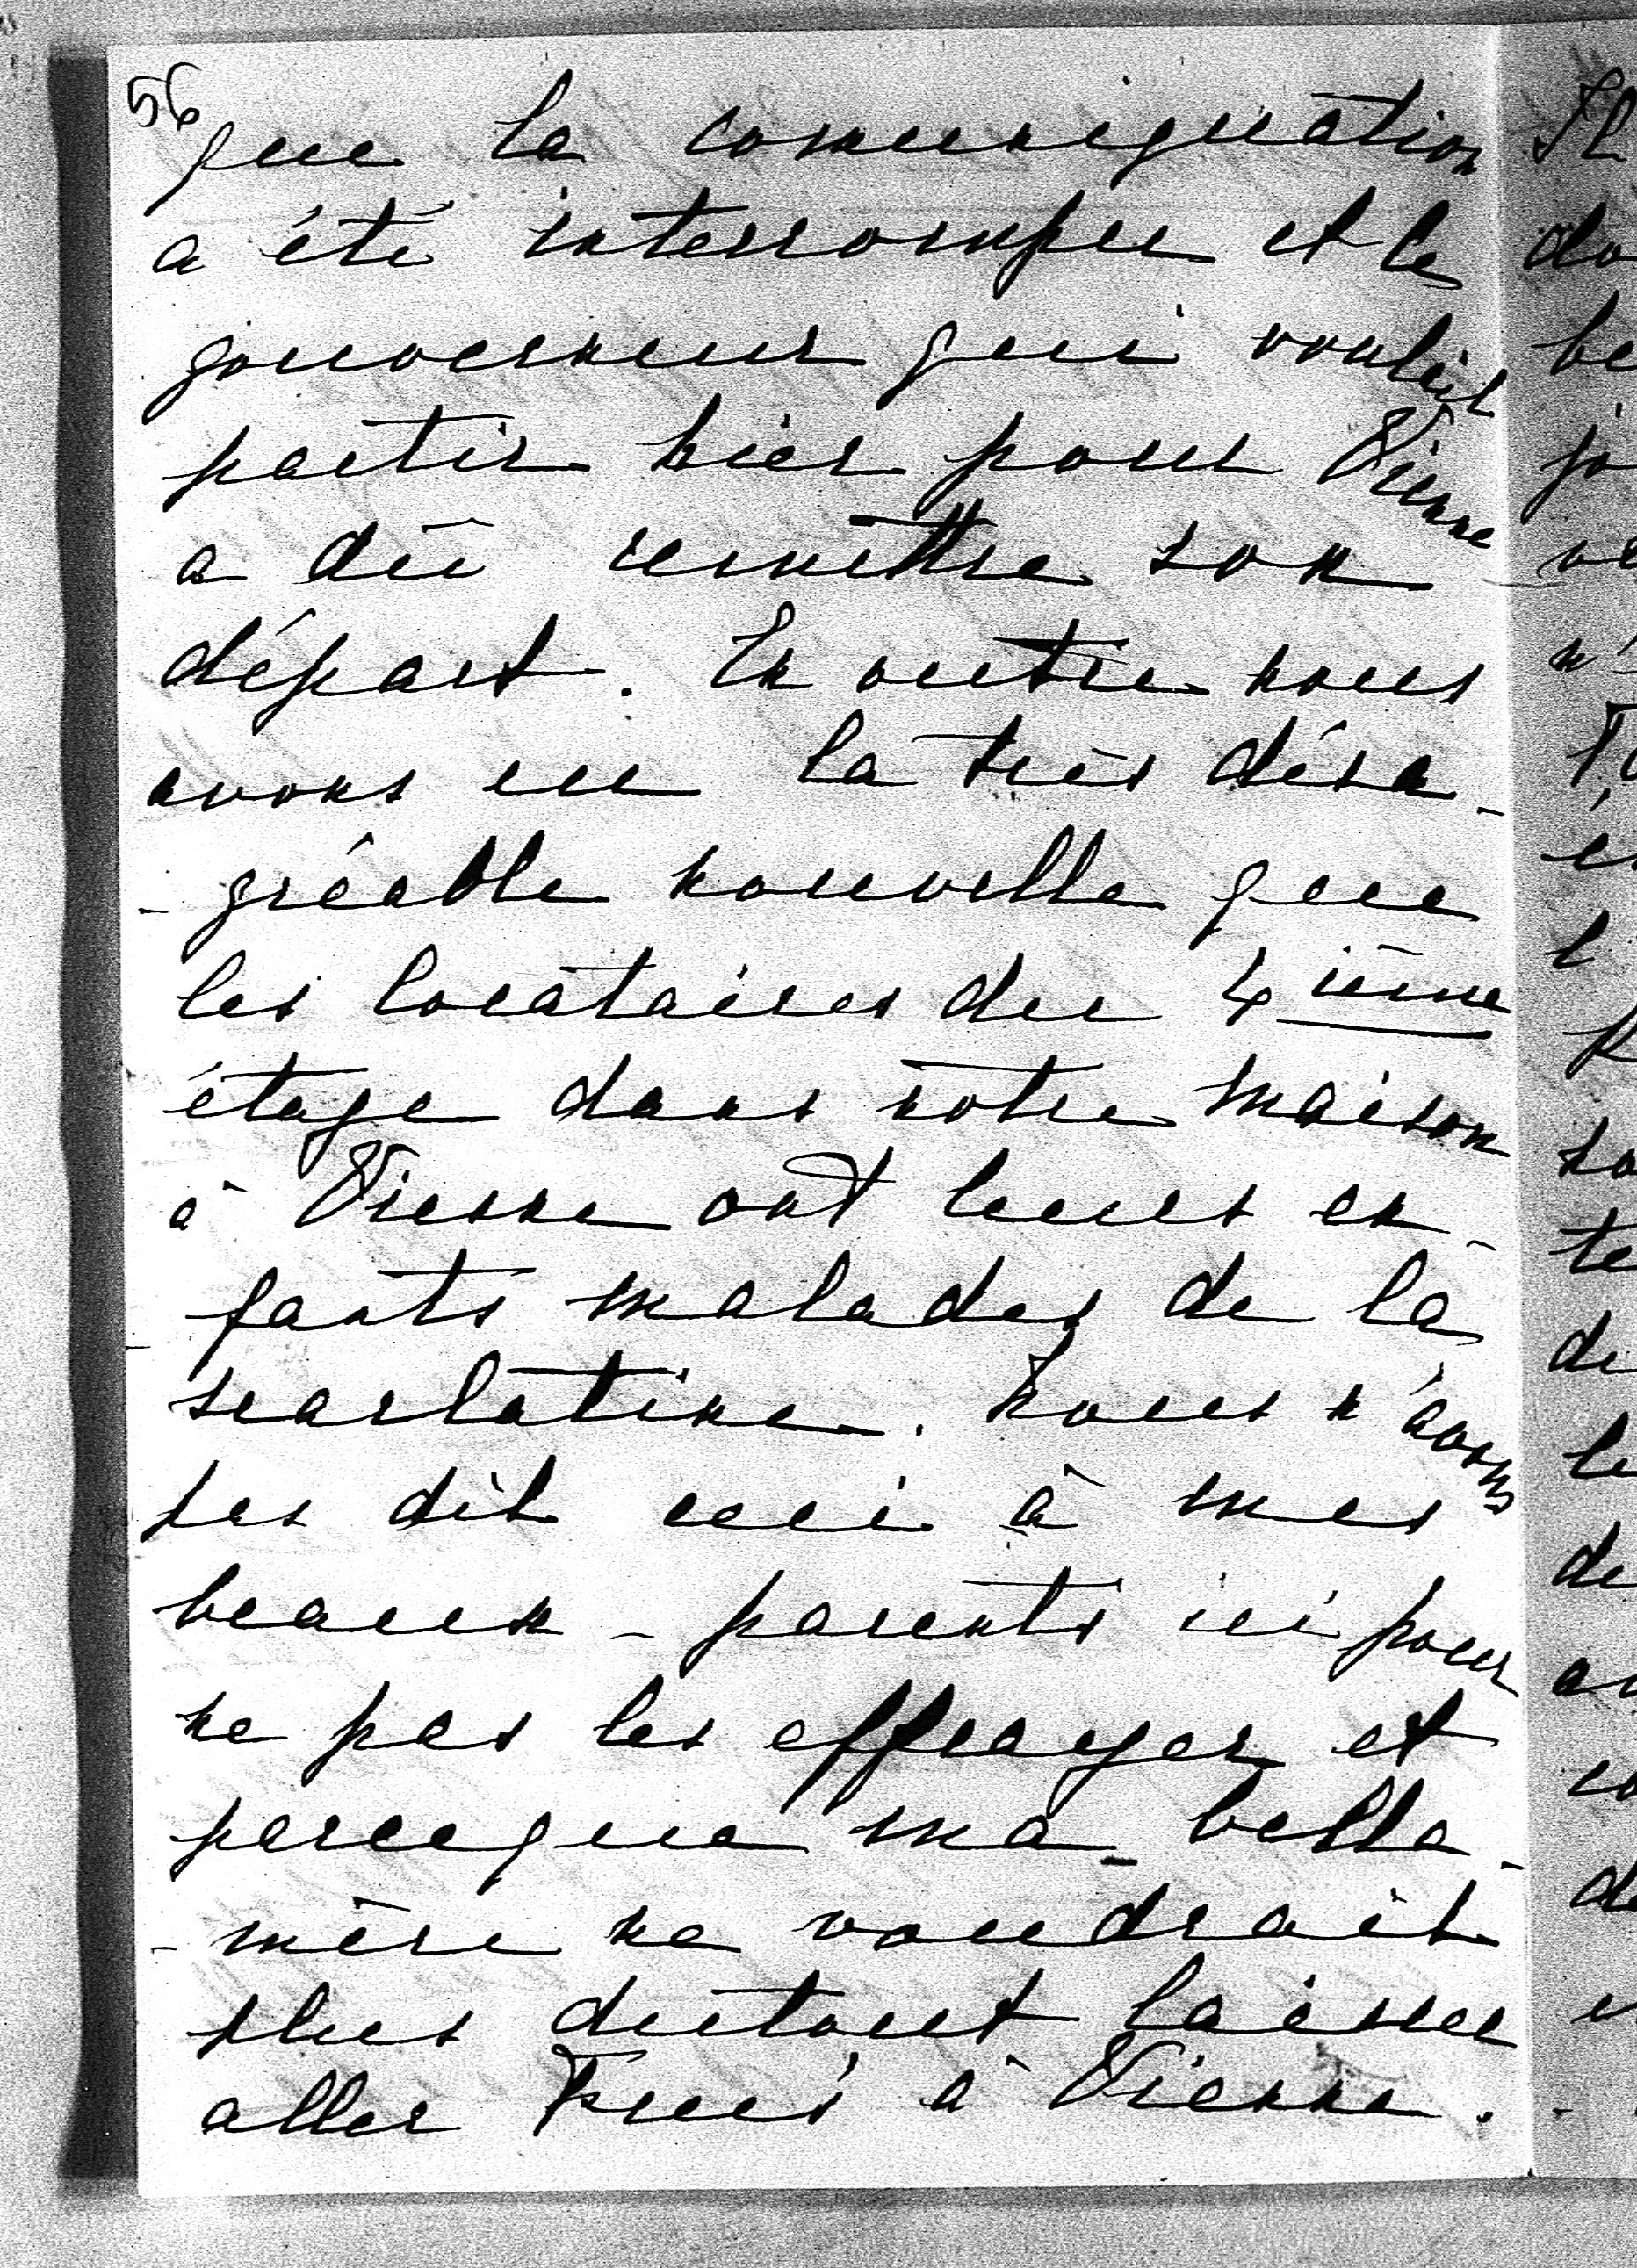 56
que la comuniquation
a été interrompue et le
gouverneur qui voulait
partir hier pour Vienne
a dû remettre son
départ. En outre nous
avons eu la très désa-
-gréable nouvelle que
les locataires du 4 ième
étage dans notre maison
à Vienne ont leurs en-
-fants malades de la
scarlatine. Nous n'avons
pas dit ceci à mes
beaux-parents ici pour
ne pas les effrayer et
parceque ma belle-
-mère ne voudrait
plus dutout laisser
aller à Vienne.